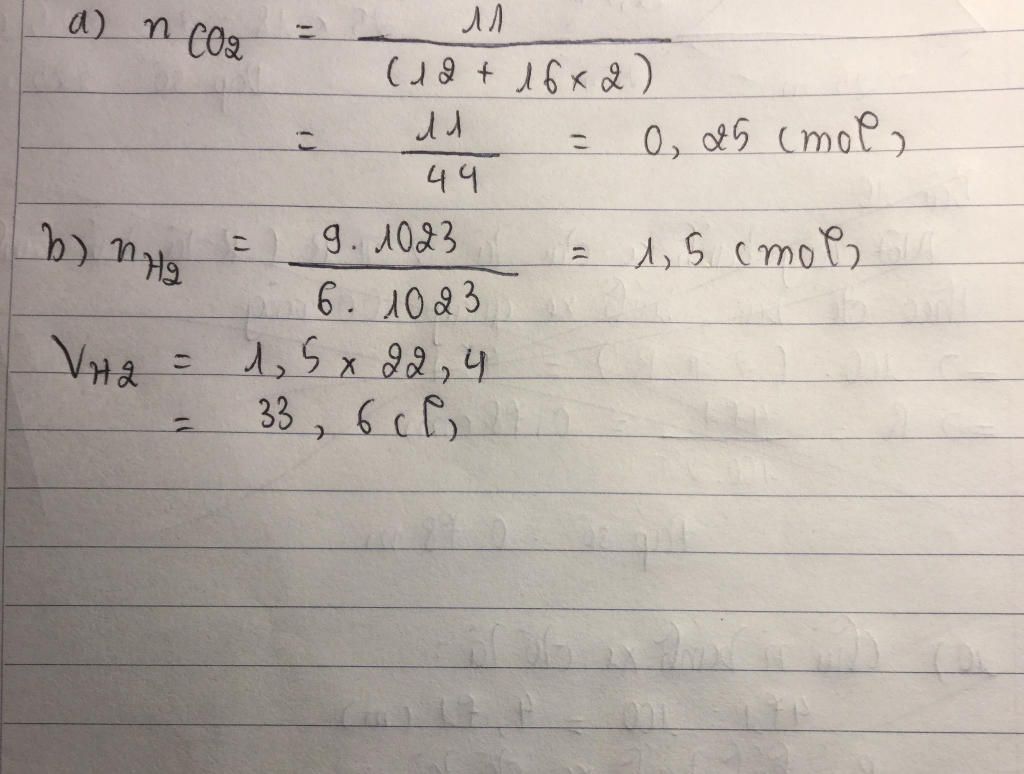 a) n CO2 = 11 / (12 + 16 x 2)
= 11 / 44 = 0,25 (mol)
b) n H2 = 9.1023 / 6.1023 = 1,5 (mol)
V H2 = 1,5 x 22,4
= 33,6 (l)